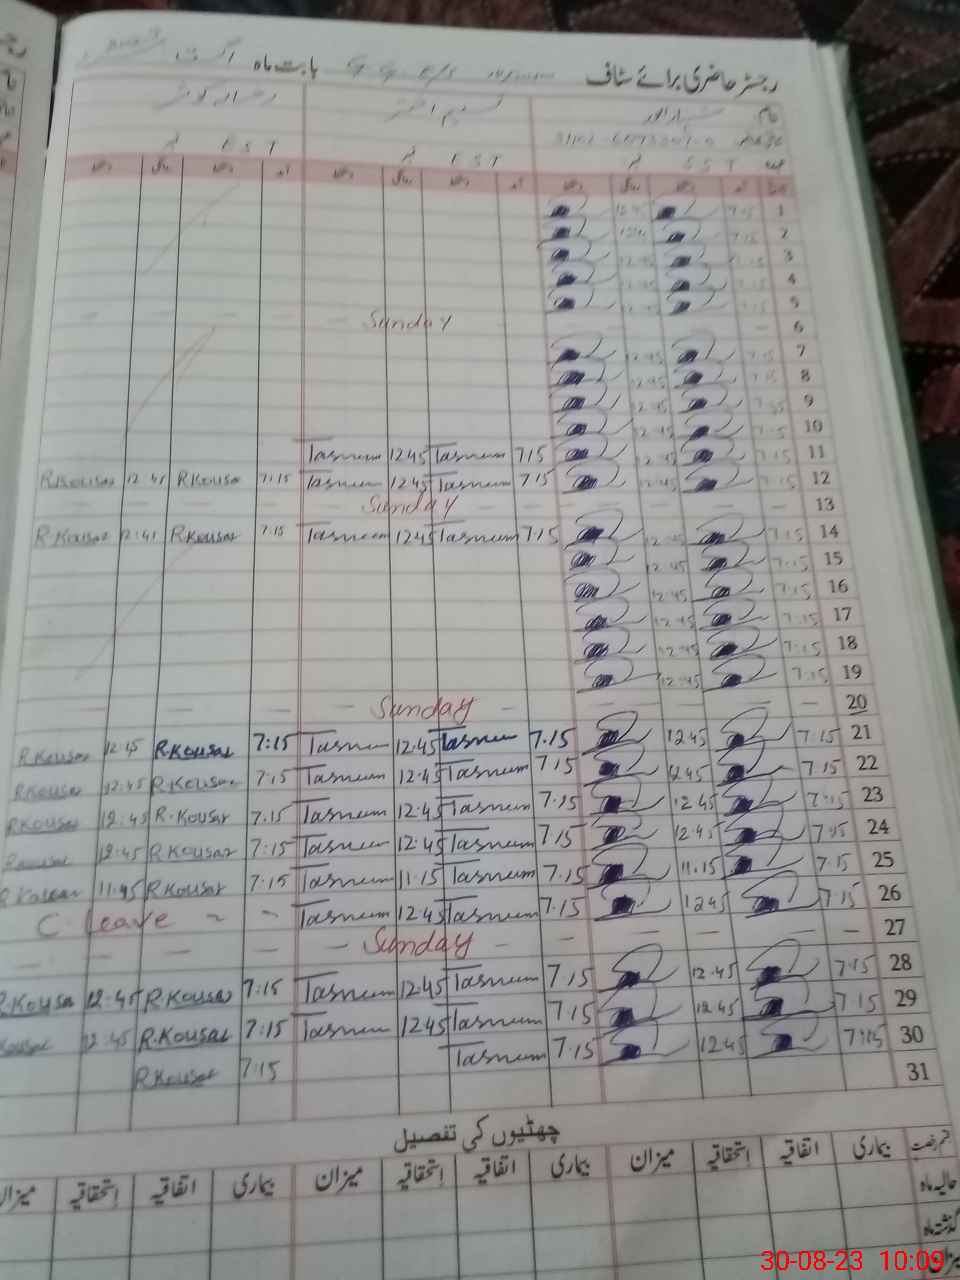 رجسٹر حاضری برائے سٹاف بابت ماہ اگست
نام
EST EST SST
7.15 12.45 1
7.15 12.45 2
7.15 12.45 3
7.15 12.45 4
7.15 12.45 5
Sunday 6
7.15 12.45 7
7.15 12.45 8
7.15 12.45 9
7.15 12.45 10
Tasneem 12 45 Tasneem 7.15 12.45 7.15 11
R.Kousar 12 45 R Kousar 7:15 Tasneem 12 45 Tasneem 7 15 12.45 7.15 12
Sunday 13
R.Kousar 12:45 R Kousar 7:15 Tasneem 12 45 Tasneem 7.15 12.45 7:15 14
12.45 7:15 15
12.45 7.15 16
12.45 7.15 17
12.45 7:15 18
12.45 7.15 19
Sunday 20
R.Kousar 12:45 R.Kousar 7:15 Tasneem 12:45 Tasneem 7.15 12 45 7:15 21
R.Kousar 12:45 R.Kousar 7:15 Tasneem 12:45 Tasneem 7.15 12.45 7.15 22
R.Kousar 12:45 R.Kousar 7.15 Tasneem 12.45 Tasneem 7.15 12 45 7:15 23
R.Kousar 12:45 R.Kousar 7:15 Tasneem 12:45 Tasneem 7.15 12:45 7:15 24
R.Kousar 11.45 R.Kousar 7:15 Tasneem 11.15 Tasneem 7.15 11.15 7.15 25
C. Leave Tasneem 12 45 Tasneem 7.15 12 45 7:15 26
Sunday 27
R.Kousar 12.45 R.Kousar 7:15 Tasneem 12:45 Tasneem 7.15 12.45 7.15 28
Kousar 12:45 R.Kousar 7:15 Tasneem 12 45 Tasneem 7.15 12:45 7 15 29
R.Kousar 7:15 Tasneem 7.15 12 45 7:15 30
31
چھٹیوں کی تفصیل
قسم رخصت بیماری اتفاقیہ استحقاقیہ میزان بیماری اتفاقیہ استحقاقیہ میزان بیماری اتفاقیہ استحقاقیہ میزان
حالیہ ماہ
گذشتہ ماہ
میزان
30-08-23 10:09